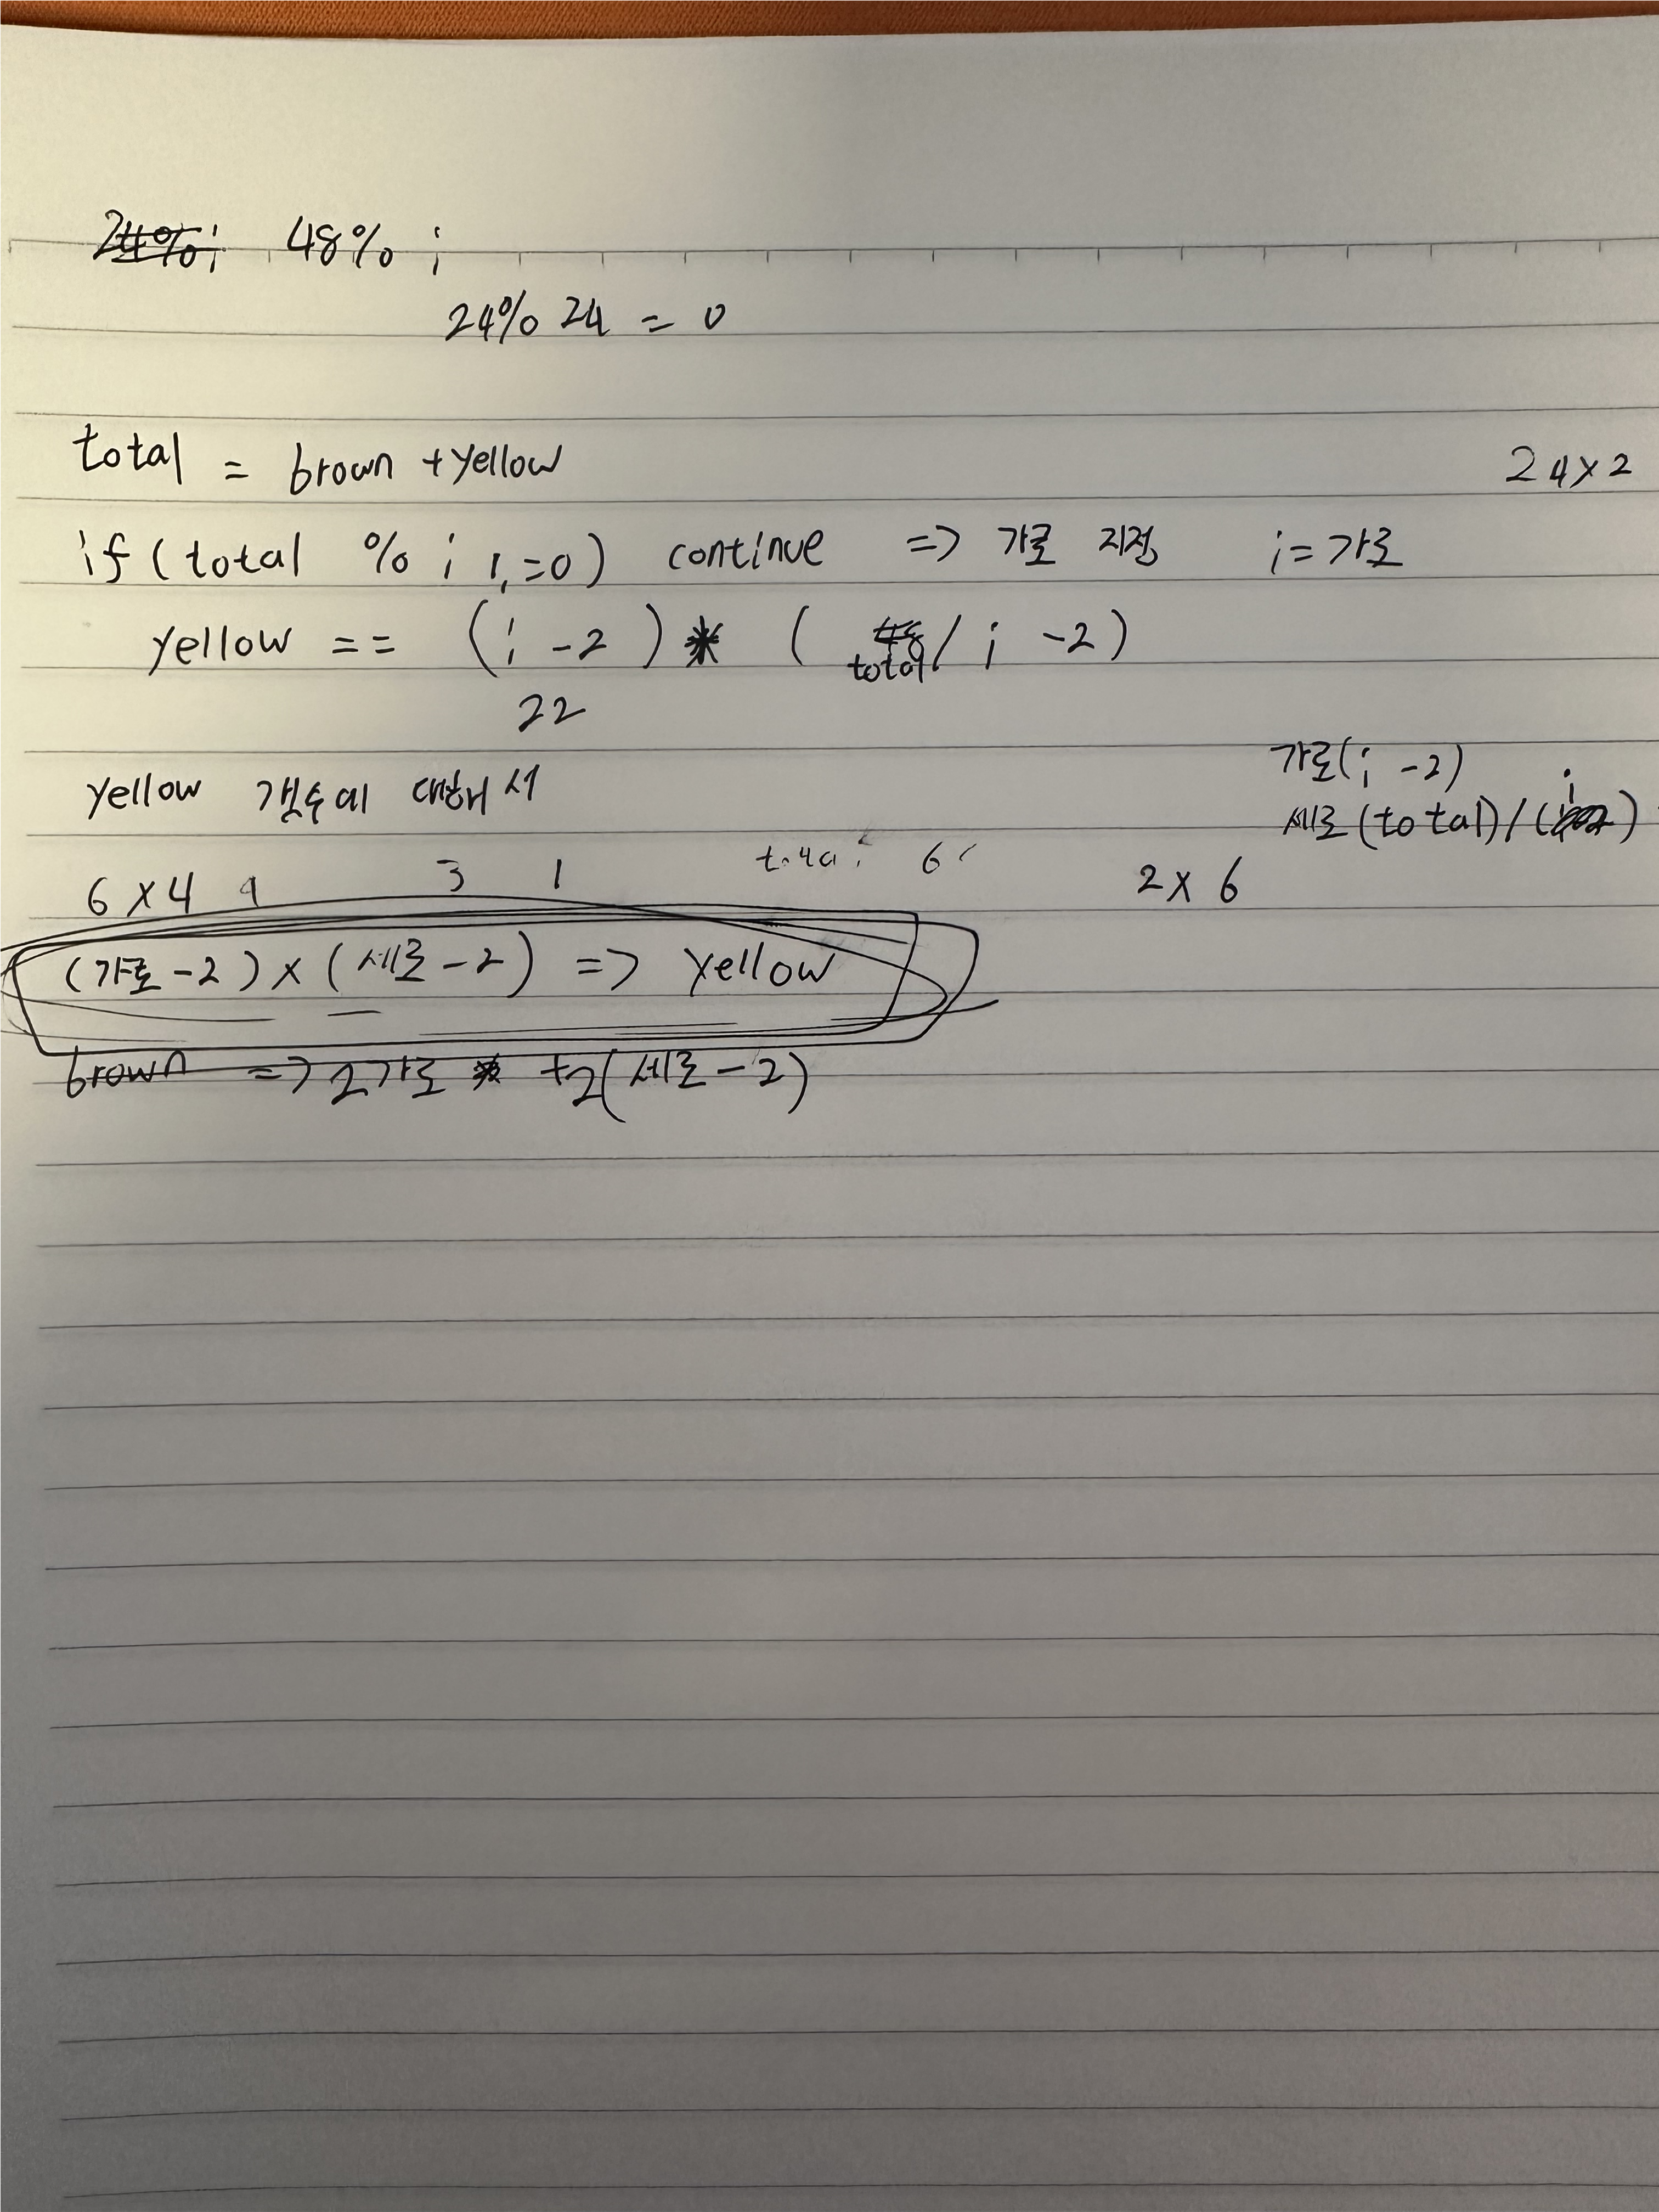 48% i
24% 24 = 0
total = brown + yellow
24 x 2
if (total % i != 0) continue => 가로 지정 i = 가로
yellow == (i -2) * ( total / i -2)
22
가로(i -2)
yellow 갯수에 대해서
세로(total)/(i)
6 x 4 3 1
2 x 6
(가로-2) x (세로-2) => yellow
brown => 2가로 +2(세로-2)